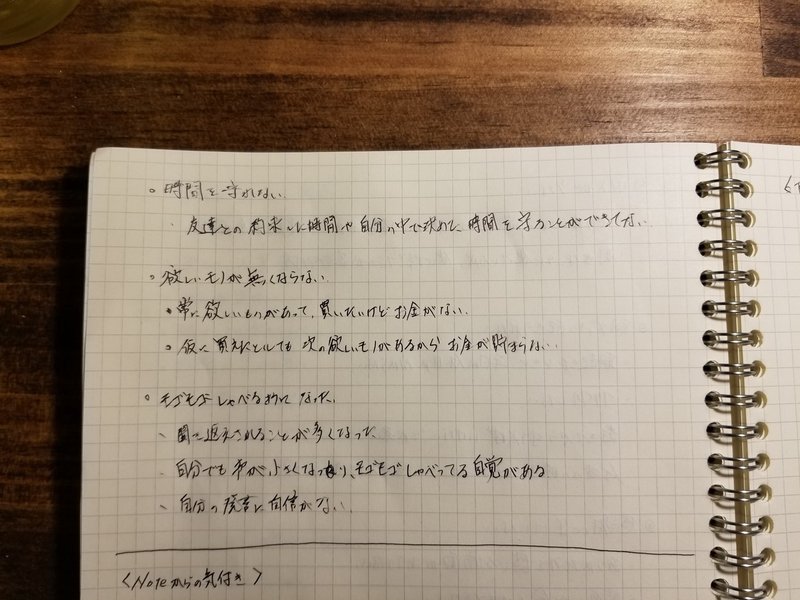 。時間を守れない。
・友達との約束した時間や自分の中で決めた時間を守ることができてない
。欲しいモノが無くならない。
・常に欲しいものがあって、買いたいけどお金がない。
・仮に買えたとしても次の欲しいモノがあるからお金が貯まらない。
。モゴモゴしゃべる様になった。
、聞き返されることが多くなった
、自分でも声が小さくなったり、モゴモゴしゃべってる自覚がある
、自分の発言に自信がない。
<Noteからの気付き>